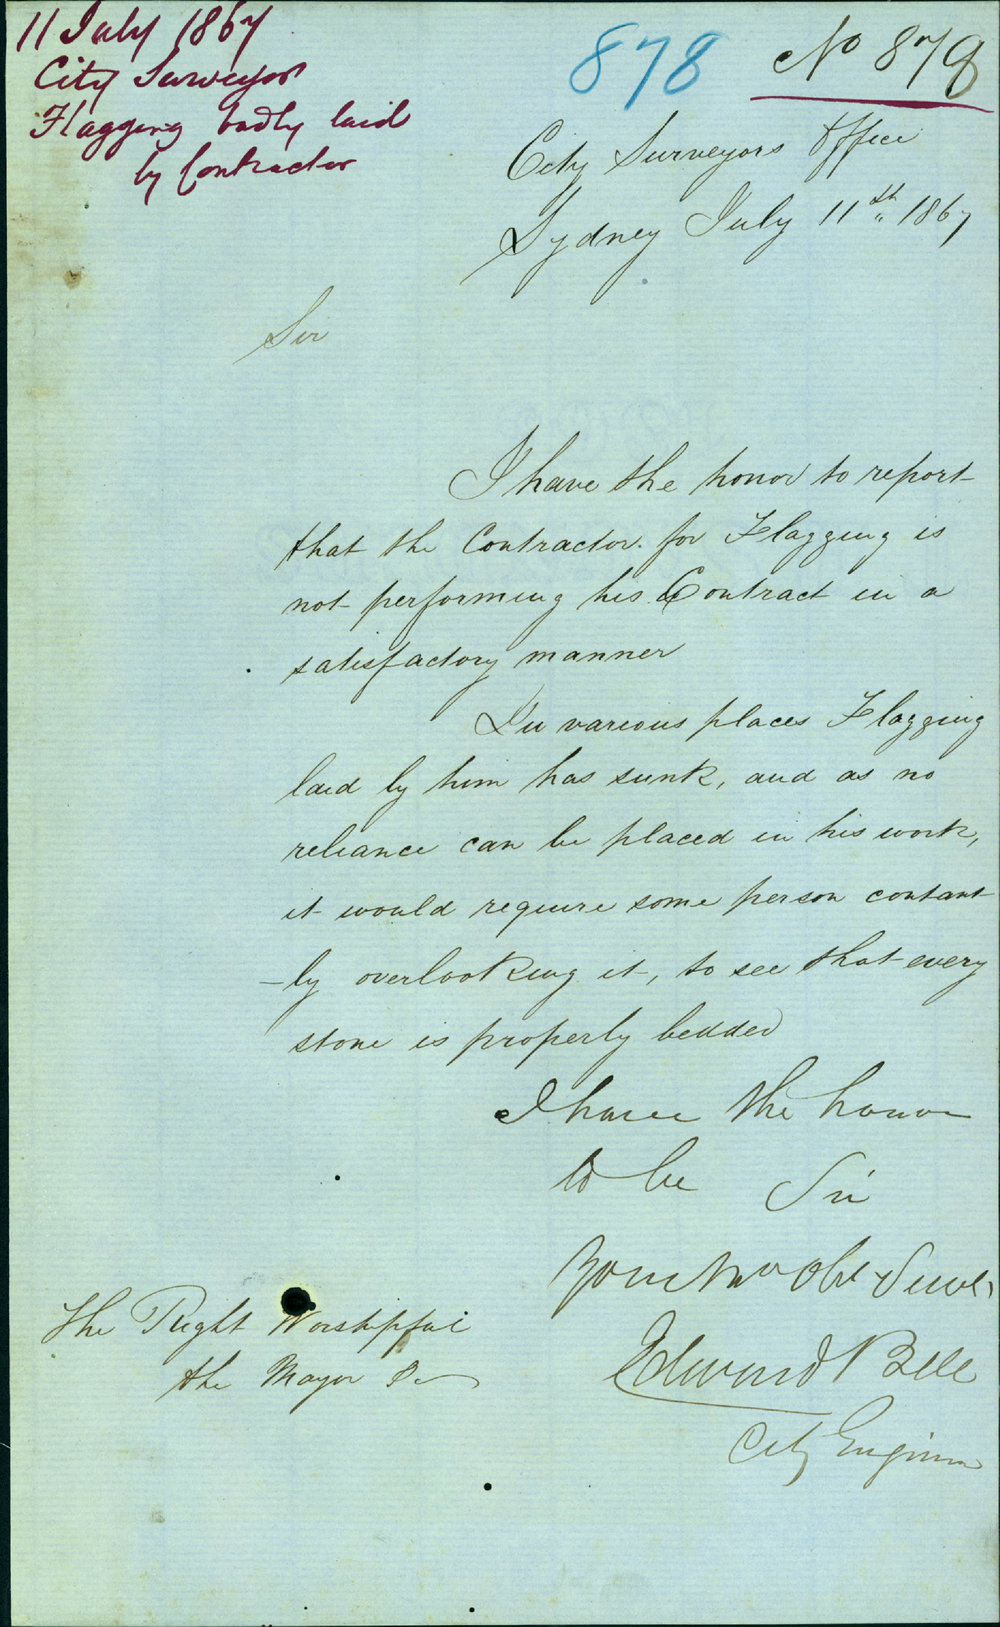 11 July 1867
City Surveyor
Flagging badly laid
by Contractor
878
No 878
City Surveyors Office
Sydney July 11th 1867
Sir
I have the honor to report
that the Contractor for Flagging is
not performing his Contract in a
satisfactory manner
In various places Flagging
laid by him has sunk, and as no
reliance can be placed in his work,
it would require some person contant
-ly overlooking it, to see that every
stone is properly bedded
I have the honor
to be Sir
Your Obt Servt
Edward Bell
City Engineer
The Right Worshipful
the Mayor